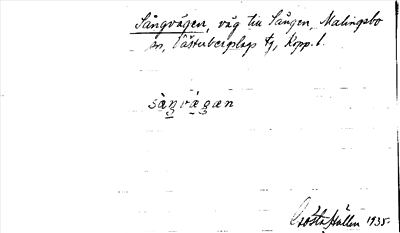 Sångvägen, väg till Sången, Malingsbo
sn, Västerbergslags tg, Kopp. l.
sàŋvä́gæn
Gösta Hallén 1935